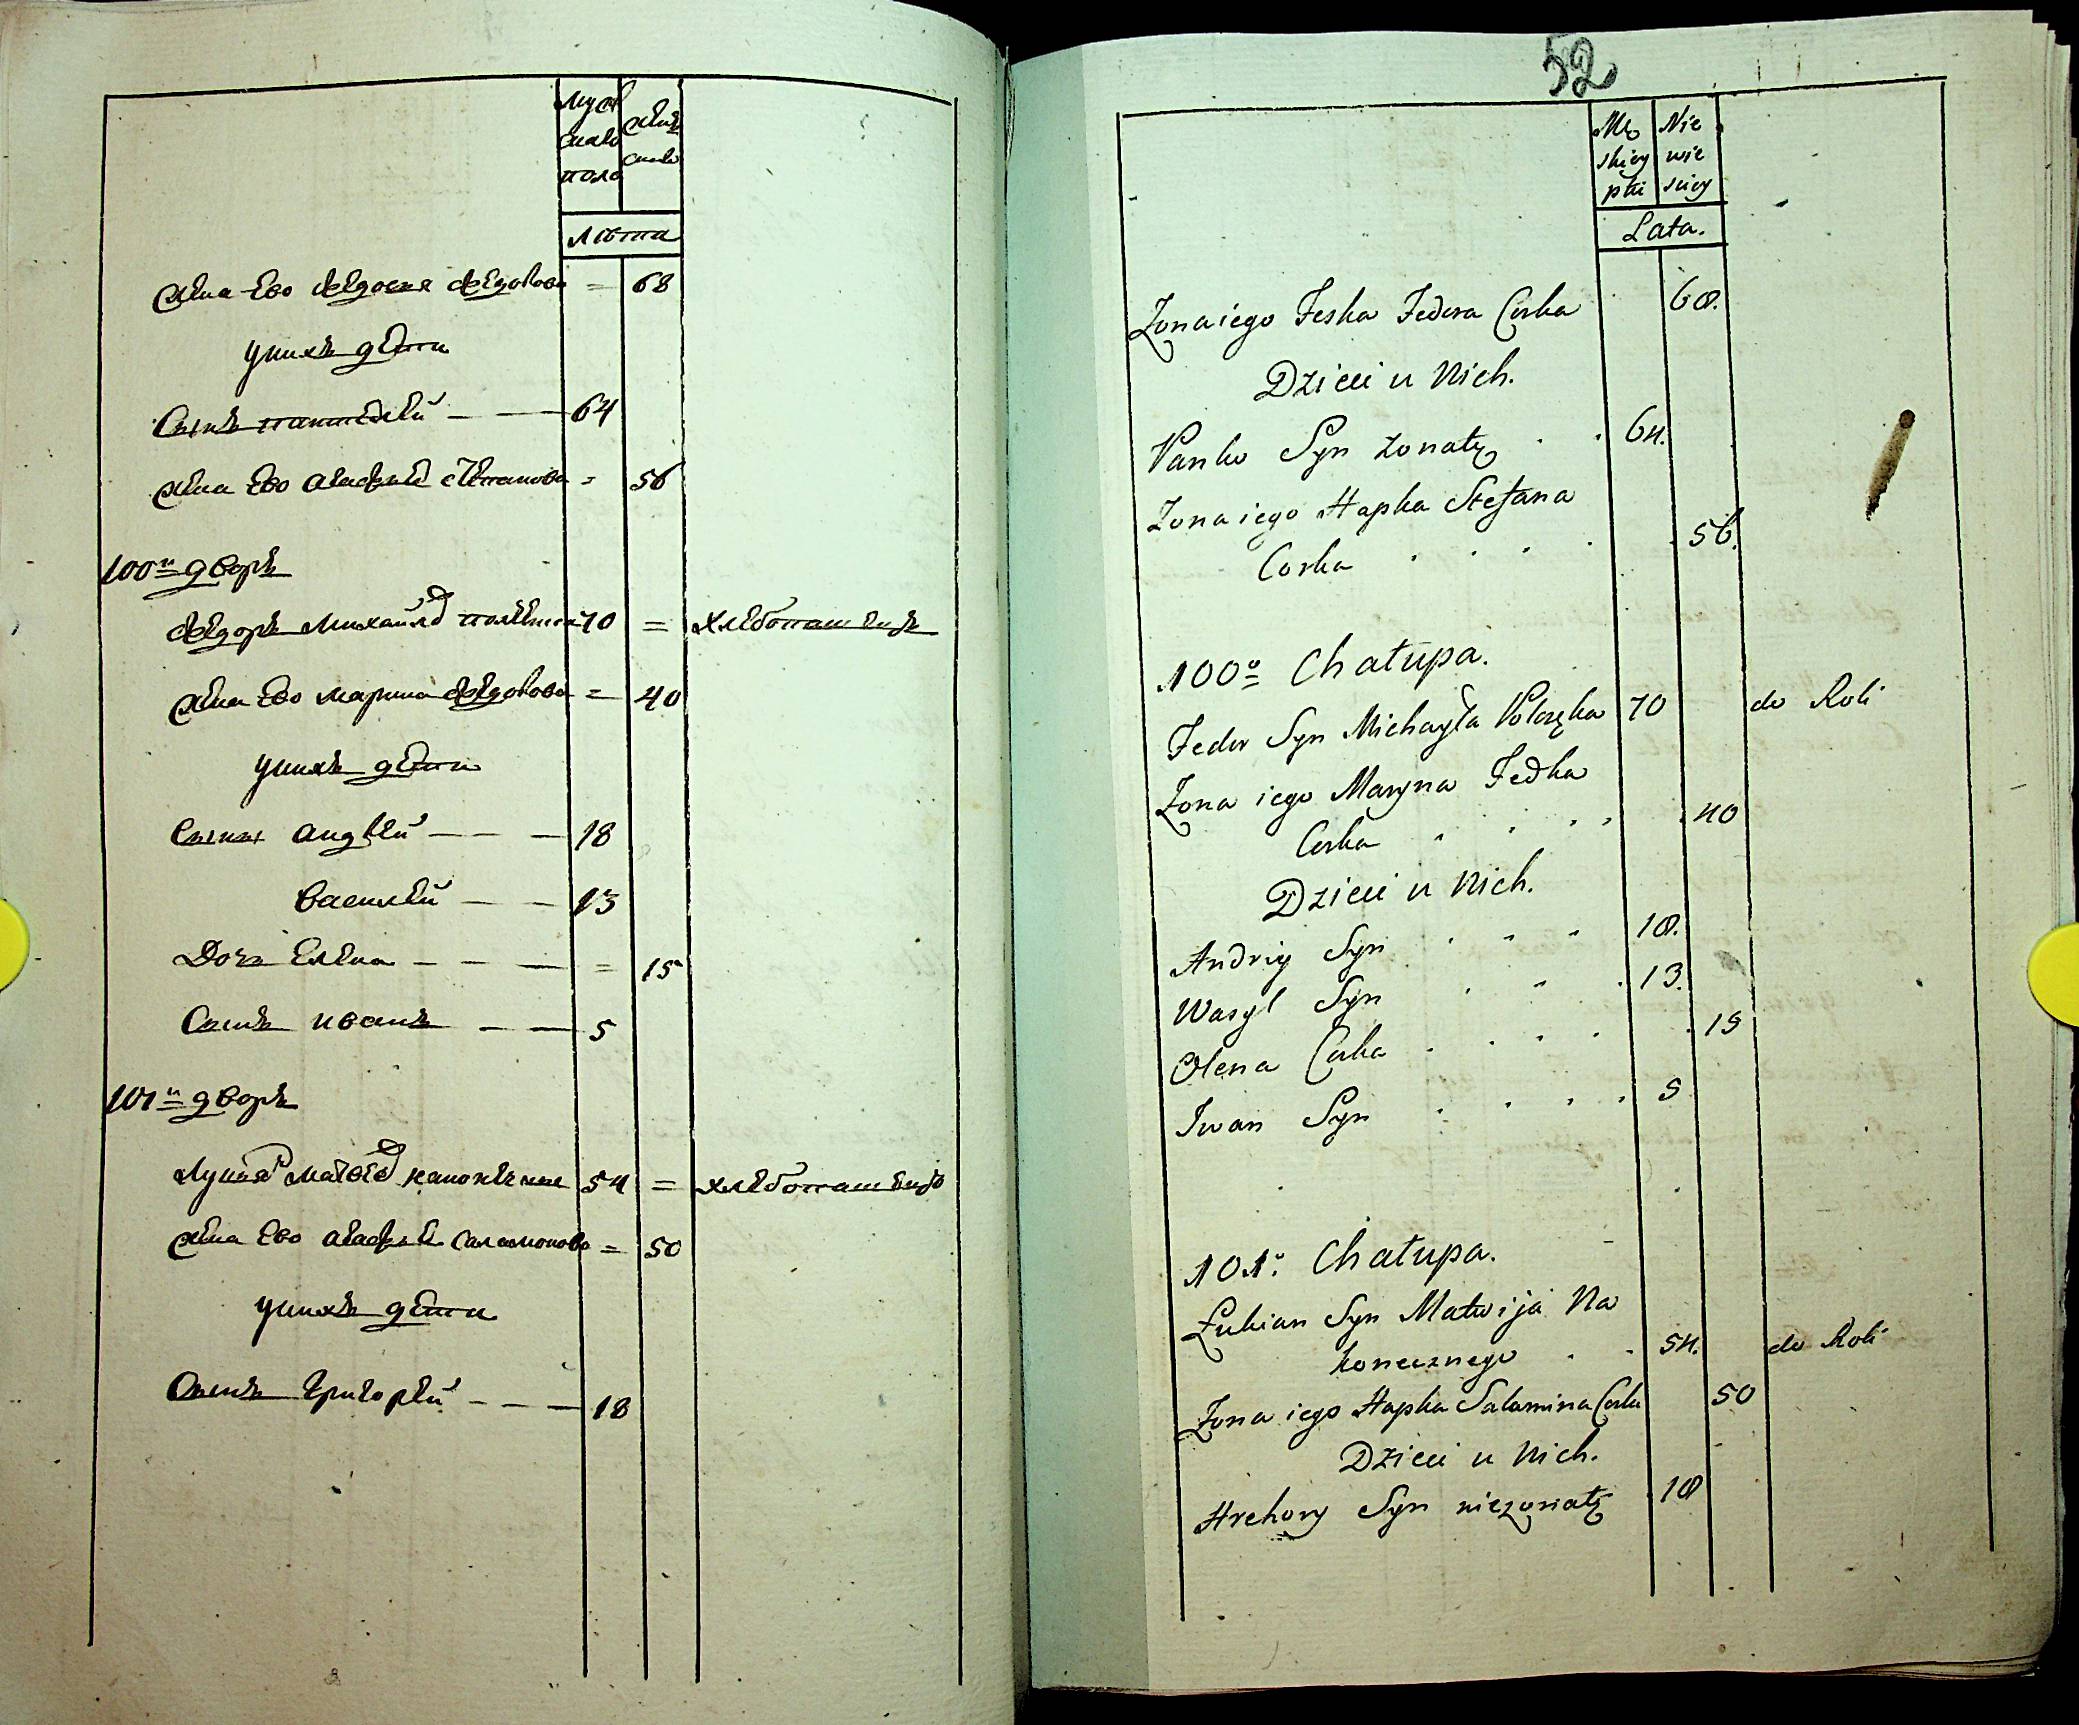 Муж
скаго
пола
Жен
скаго
Лѣта
Жена Ево Федосия Федорова = 68
у нихъ дѣти
Сынъ Пантелѣй — — 64
Жена Ево Агафия Степанова = 56
100й дворъ
Федоръ Михайлов 70 = хлебопашецъ
Жена Ево Марина Федорова = 40
у нихъ дѣти
Сыны Андрей — — — 18
Василей — — 13
Дочь Елена — — — = 15
Сынъ Иванъ — — 5
101й дворъ
Лукиянъ Матвеев 54 = хлебопашецъ
Жена Ево Агафия Саламонова = 50
у нихъ дѣти
Сынъ Григорей — — — 18
52
Mę
skiey
płci
Nie
wie
sciey
Lata.
Zona iego Feska Fedora Corka 68.
Dzieci u Nich.
Panko Syn zonaty 64.
Zona iego Hapka Stefana
Corka 56.
100o Chałupa.
Fedor Syn Michayła 70 do Roli
Zona iego Maryna Fedka
Corka 40
Dzieci u Nich.
Andriy Syn 18.
Wasyl Syn 13.
Olena Corka 15
Iwan Syn 5
101o. Chałupa.
Łukian Syn Matwija Na
konecznego 54. do Roli
Zona iego Hapka Salamina Corka 50
Dzieci u Nich.
Hrehory Syn niezonaty 18